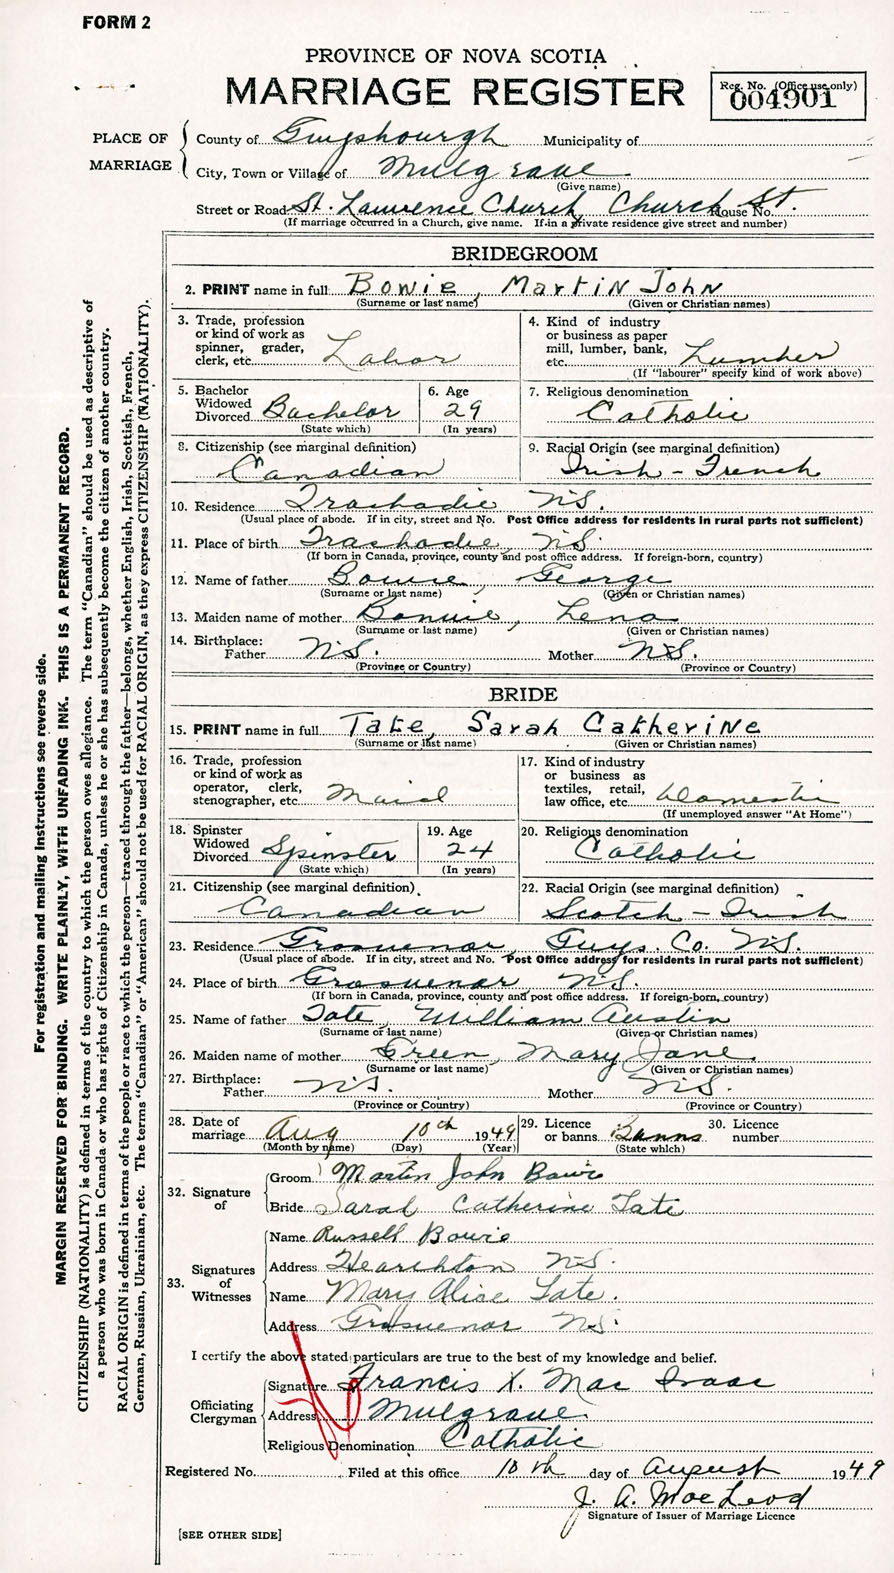 FORM 2
PROVINCE OF NOVA SCOTIA
MARRIAGE REGISTER
Reg. No. (Office use only)
004901
PLACE OF MARRIAGE
County of Guyshourgh Municipality of
City, Town or Village of Mulgrave
(Give name)
Street or Road St. Lawrence Church, Church St. House No.
(If marriage occurred in a Church, give name. If in a private residence give street and number)
BRIDEGROOM
2. PRINT name in full Bowie, Martin John
(Surname or last name) (Given or Christian names)
3. Trade, profession or kind of work as spinner, grader, clerk, etc. Labor
4. Kind of industry or business as paper mill, lumber, bank, etc. Lumber
(If "labourer" specify kind of work above)
5. Bachelor Widowed Divorced Bachelor
(State which)
6. Age 29
(In years)
7. Religious denomination Catholic
8. Citizenship (see marginal definition) Canadian
9. Racial Origin (see marginal definition) Irish - French
10. Residence Trachadie N.S.
(Usual place of abode. If in city, street and No. Post Office address for residents in rural parts not sufficient)
11. Place of birth Trachadie, N.S.
(If born in Canada, province, county and post office address. If foreign-born, country)
12. Name of father Bowie, George
(Surname or last name) (Given or Christian names)
13. Maiden name of mother Bonvie, Lena
(Surname or last name) (Given or Christian names)
14. Birthplace: Father N.S. Mother N.S.
(Province or Country) (Province or Country)
BRIDE
15. PRINT name in full Tate, Sarah Catherine
(Surname or last name) (Given or Christian names)
16. Trade, profession or kind of work as operator, clerk, stenographer, etc. Maid
17. Kind of industry or business as textiles, retail, law office, etc. Domestic
(If unemployed answer "At Home")
18. Spinster Widowed Divorced Spinster
(State which)
19. Age 24
(In years)
20. Religious denomination Catholic
21. Citizenship (see marginal definition) Canadian
22. Racial Origin (see marginal definition) Scotch - Irish
23. Residence Grosvenor, Guys. Co. N.S.
(Usual place of abode. If in city, street and No. Post Office address for residents in rural parts not sufficient)
24. Place of birth Grosvenor N.S.
(If born in Canada, province, county and post office address. If foreign-born, country)
25. Name of father Tate, William Austin
(Surname or last name) (Given or Christian names)
26. Maiden name of mother Green, Mary Jane
(Surname or last name) (Given or Christian names)
27. Birthplace: Father N.S. Mother N.S.
(Province or Country) (Province or Country)
28. Date of marriage Aug 10th 1949
(Month by name) (Day) (Year)
29. Licence or banns Banns
(State which)
30. Licence number
32. Signature of
Groom Martin John Bowie
Bride Sarah Catherine Tate
33. Signatures of Witnesses
Name Russell Bowie
Address N.S.
Name Mary Alice Tate.
Address Grosvenor N.S.
I certify the above stated particulars are true to the best of my knowledge and belief.
Officiating Clergyman
Signature Francis X. Mac Isaac
Address Mulgrave
Religious Denomination Catholic
Registered No. Filed at this office 10th day of August 1949
J. A. MacLeod
Signature of Issuer of Marriage Licence
[SEE OTHER SIDE]
For registration and mailing instructions see reverse side.
MARGIN RESERVED FOR BINDING. WRITE PLAINLY, WITH UNFADING INK. THIS IS A PERMANENT RECORD.
CITIZENSHIP (NATIONALITY) is defined in terms of the country to which the person owes allegiance. The term "Canadian" should be used as descriptive of
a person who was born in Canada or who has rights of Citizenship in Canada, unless he or she has subsequently become the citizen of another country.
RACIAL ORIGIN is defined in terms of the people or race to which the person—traced through the father—belongs, whether English, Irish, Scottish, French,
German, Russian, Ukrainian, etc. The terms "Canadian" or "American" should not be used for RACIAL ORIGIN, as they express CITIZENSHIP (NATIONALITY).